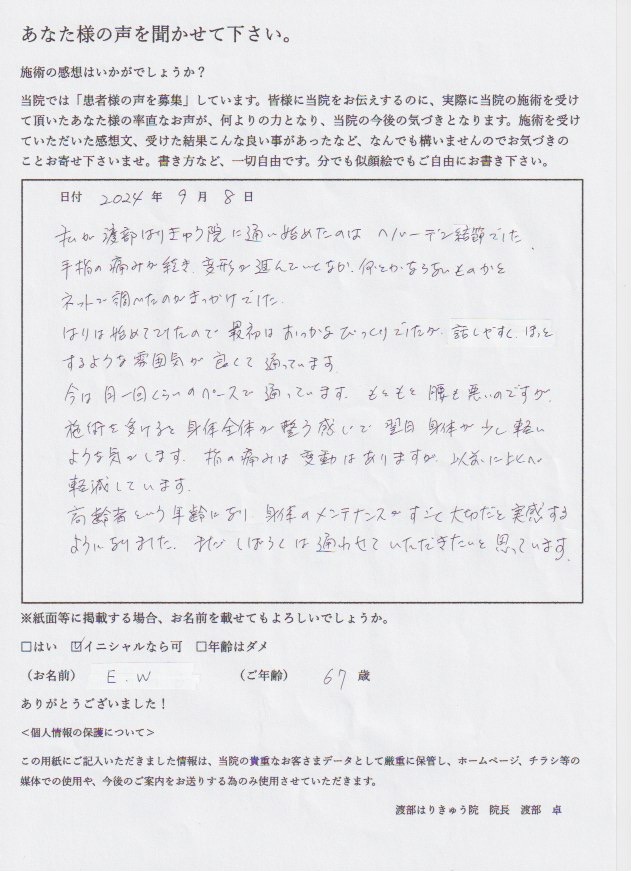 あなた様の声を聞かせて下さい。
施術の感想はいかがでしょうか？
当院では「患者様の声を募集」しています。皆様に当院をお伝えするのに、実際に当院の施術を受け
て頂いたあなた様の率直なお声が、何よりの力となり、当院の今後の気づきとなります。施術を受け
ていただいた感想文、受けた結果こんな良い事があったなど、なんでも構いませんのでお気づきの
ことお寄せ下さいませ。書き方など、一切自由です。分でも似顔絵でもご自由にお書き下さい。
日付 2024 年 9 月 8 日
私が渡部はりきゅう院に通い始めたのは ヘバーデン結節でした。
手指の痛みが続き、変形が進んでいくなか、何とかならないものかと
ネットで調べたのがきっかけでした。
はりは始めてでしたので 最初はおっかなびっくりでしたが、話しやすく、ほっと
するような雰囲気が良くて通っています。
今は月一回くらいのペースで通っています。もともと腰も悪いのですが、
施術を受けると身体全体が整う感じで翌日身体が少し軽い
ような気がします。指の痛みは変動はありますが、以前に比べ
軽減しています。
高齢者という年齢になり、身体のメンテナンスがすごく大切だと実感する
ようになりました。まだしばらくは通わせていただきたいと思っています。
※紙面等に掲載する場合、お名前を載せてもよろしいでしょうか。
□はい ☑イニシャルなら可 □年齢はダメ
（お名前） E.W （ご年齢） 67 歳
ありがとうございました！
＜個人情報の保護について＞
この用紙にご記入いただきました情報は、当院の貴重なお客さまデータとして厳重に保管し、ホームページ、チラシ等の
媒体での使用や、今後のご案内をお送りする為のみ使用させていただきます。
渡部はりきゅう院 院長 渡部 卓